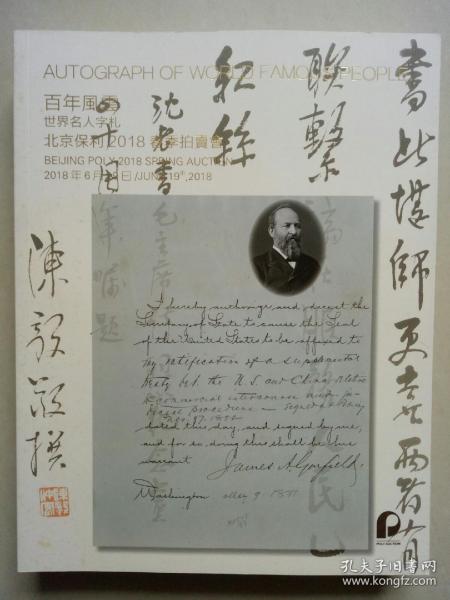 AUTOGRAPH OF WORLD FAMOUS PEOPLE
百年風雲
世界名人字札
北京保利2018春季拍賣會
BEIJING POLY 2018 SPRING AUCTION
2018年6月19日/JUNE 19th, 2018
書此堪師更喜兩者有
聯繫
紅絲
沈尹
陳毅敬撰
I hereby authorize and direct the
Secretary of State to cause the Seal
of the United States to be affixed to
my ratification of a supplemental
treaty bet. the U.S. and China, relative
to commercial intercourse and
judicial procedure
dated this day, and signed by me,
and for so doing this shall be his
warrant.
James A Garfield
Washington
P
POLY AUCTION
孔夫子旧书网
www.kongfz.com